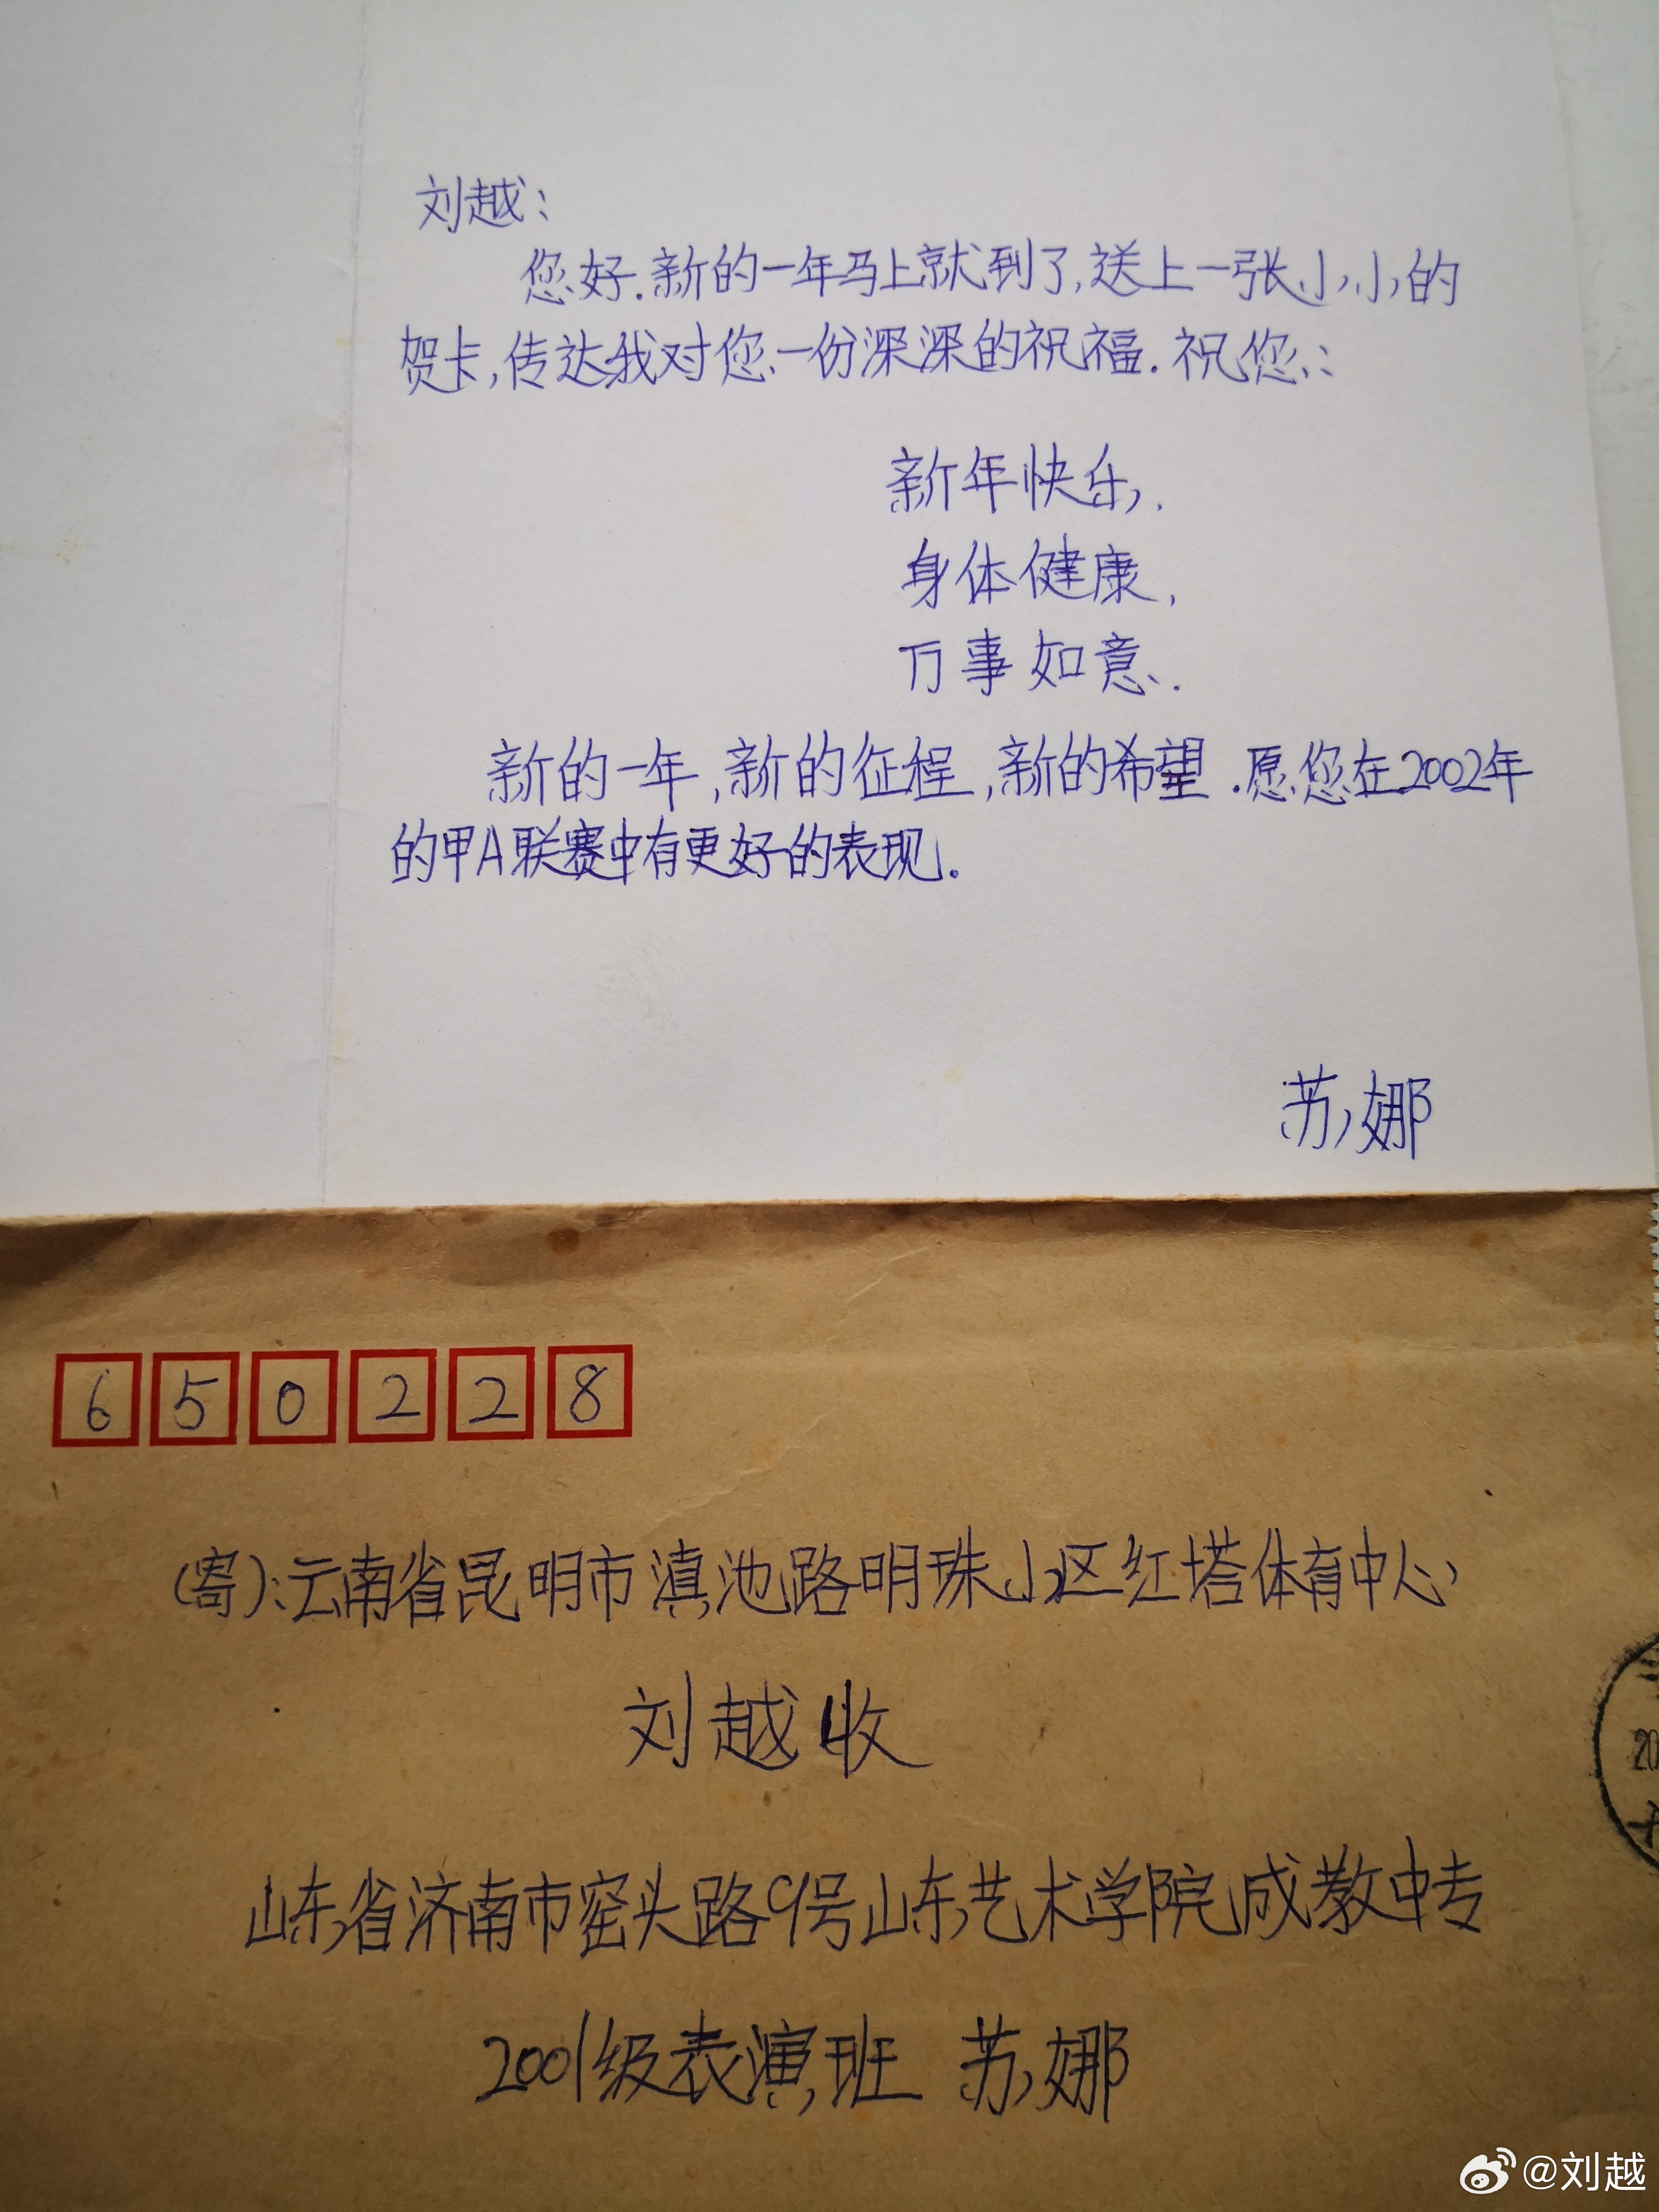 刘越：
您好.新的一年马上就到了,送上一张小小的
贺卡,传达我对您一份深深的祝福.祝您：
新年快乐,.
身体健康,
万事如意.
新的一年,新的征程,新的希望.愿您在2002年
的甲A联赛中有更好的表现.
苏娜
650228
(寄):云南省昆明市滇池路明珠小区红塔体育中心
刘越收
山东省济南市窑头路9号山东艺术学院成教中专
2001级表演班 苏娜
20
@刘越